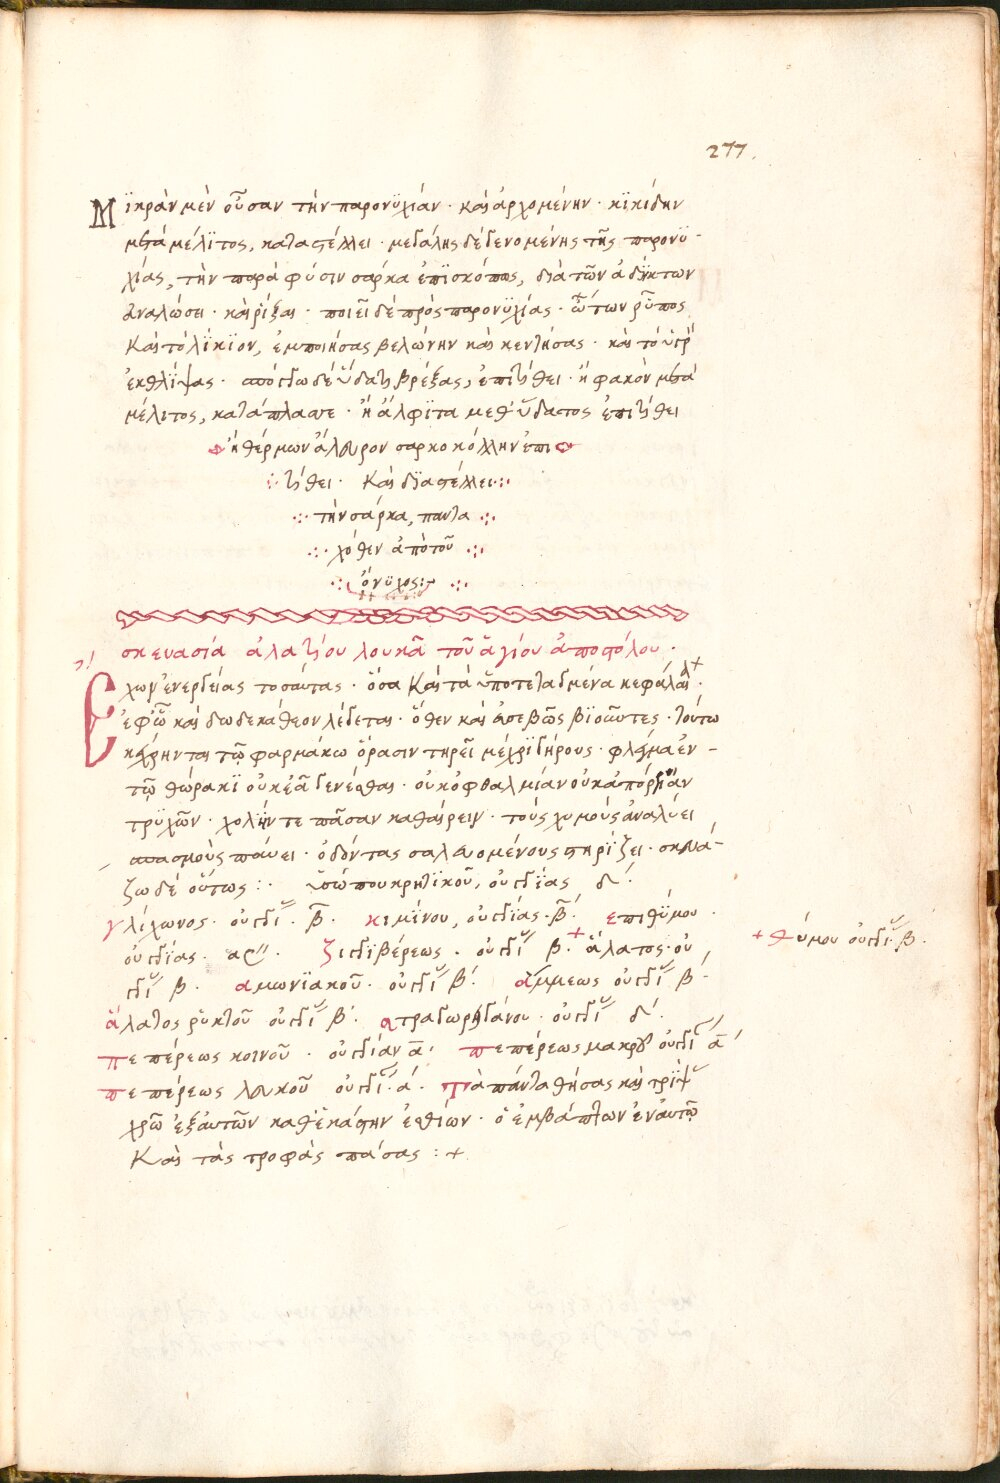 277.
Μϊκρὰν μὲν οὖσαν τὴν παρονϋχιάν · καὶ ἀρχομένην · κϊκίδην
μετὰ μέλϊτος, καταστέλλει · μεγάλης δὲ γενομένης τῆς παρονϋ-
χίας, τὴν παρὰ φύσιν σάρκα ἐπϊσκόπως, διὰ τῶν ἀδήκτων
ἀναλώσει · καὶ ρίξαι · ποιεῖ δὲ πρὸς παρονϋχίας · ὤτων ρῦπος
καὶ τὸ λϊκϊον, ἐμποιήσας βελώνην καὶ κεντήσας · καὶ τὸ ὑγρὸ
ἐκθλίψας · σπόγγω δὲ ὕδατι βρέξας, ἐπιτίθει · ἢ φακὸν μετὰ
μέλιτος, κατάπλασσε · ἢ ἄλφϊτα μεθ' ὕδατος ἐπιτίθει
ἢ θέρμων ἄλευρον σαρκοκόλλην ἐπι
τίθει · καὶ διαστέλλει
τὴν σάρκα, παντα
χόθεν ἀπὸ τοῦ
ὄνϋχος
σκευασία ἀλατίου λουκᾶ τοῦ ἁγίου ἀποστόλου ·
Ἔχων ἐνεργείας τοσαύτας · ὅσα καὶ τὰ ὑποτεταγμένα κεφάλαι ·
ἐφ' ὧ καὶ δωδεκάθεον λέγεται · ὅθεν καὶ ἀσεβῶς βϊοῶντες · τούτω
κέχρηνται τῷ φαρμάκω ὅρασιν τηρεῖ μέχρϊ γήρους · φλέγμα ἐν
τῷ θώρακϊ οὐκ ἐᾶ γενέσθαι · οὐκ ὀφθαλμίαν οὐκ ἀπόρροιαν
τρϋχῶν · χολήν τε πᾶσαν καθαίρειν · τοὺς χυμοὺς ἀναλύει
σπασμοὺς παύει · ὀδόντας σαλευομένους στηρϊζει · σκευά-
ζω δὲ οὕτως : · ὑσώπου κρητϊκοῦ, οὐγγίας δ ·
γλίχωνος · οὐγγί · β · κιμϊνου, οὐγγίας · β · ἐπιθϋμου ·
οὐγγίας · α · ζιγγϊβέρεως · οὐγγί β · + ἅλατος · οὐ
γγί β · αμωνϊακοῦ · οὐγγί β · ἄμμεως οὐγγί β ·
+ θύμου οὐγγί · β ·
ἅλατος ρυκτοῦ οὐγγί β · οὐγγί δ ·
πεπέρεως κοινοῦ · οὐγγίαν α · πεπέρεως μακροῦ οὐγγί α
πεπέρεως λευκοῦ οὐγγί · α · τὰ πάντα θήσας καὶ τρϊψ
χρῶ ἐξ αὐτῶν καθ' ἑκάστην ἐσθίων · ὁ ἐμβάπτων ἐν αὐτῷ
καὶ τὰς τροφὰς πάσας : +